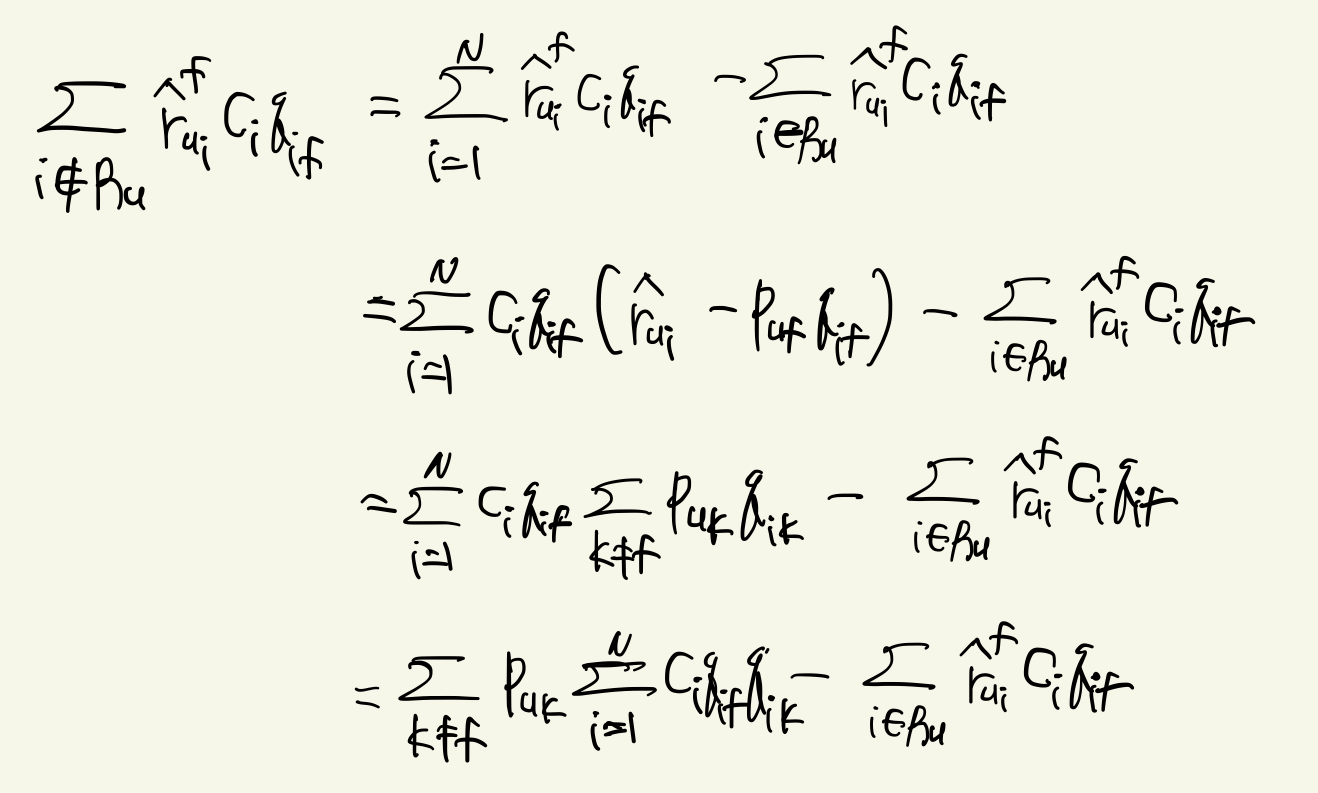 $\sum_{i \notin R_u} \hat{r}_{ui}^f c_i q_{if} = \sum_{i=1}^{N} \hat{r}_{ui}^f c_i q_{if} - \sum_{i \in R_u} \hat{r}_{ui}^f c_i q_{if}$
$= \sum_{i=1}^{N} c_i q_{if} \left( \hat{r}_{ui} - p_{uf} q_{if} \right) - \sum_{i \in R_u} \hat{r}_{ui}^f c_i q_{if}$
$= \sum_{i=1}^{N} c_i q_{if} \sum_{k \neq f} p_{uk} q_{ik} - \sum_{i \in R_u} \hat{r}_{ui}^f c_i q_{if}$
$= \sum_{k \neq f} p_{uk} \sum_{i=1}^{N} c_i q_{if} q_{ik} - \sum_{i \in R_u} \hat{r}_{ui}^f c_i q_{if}$